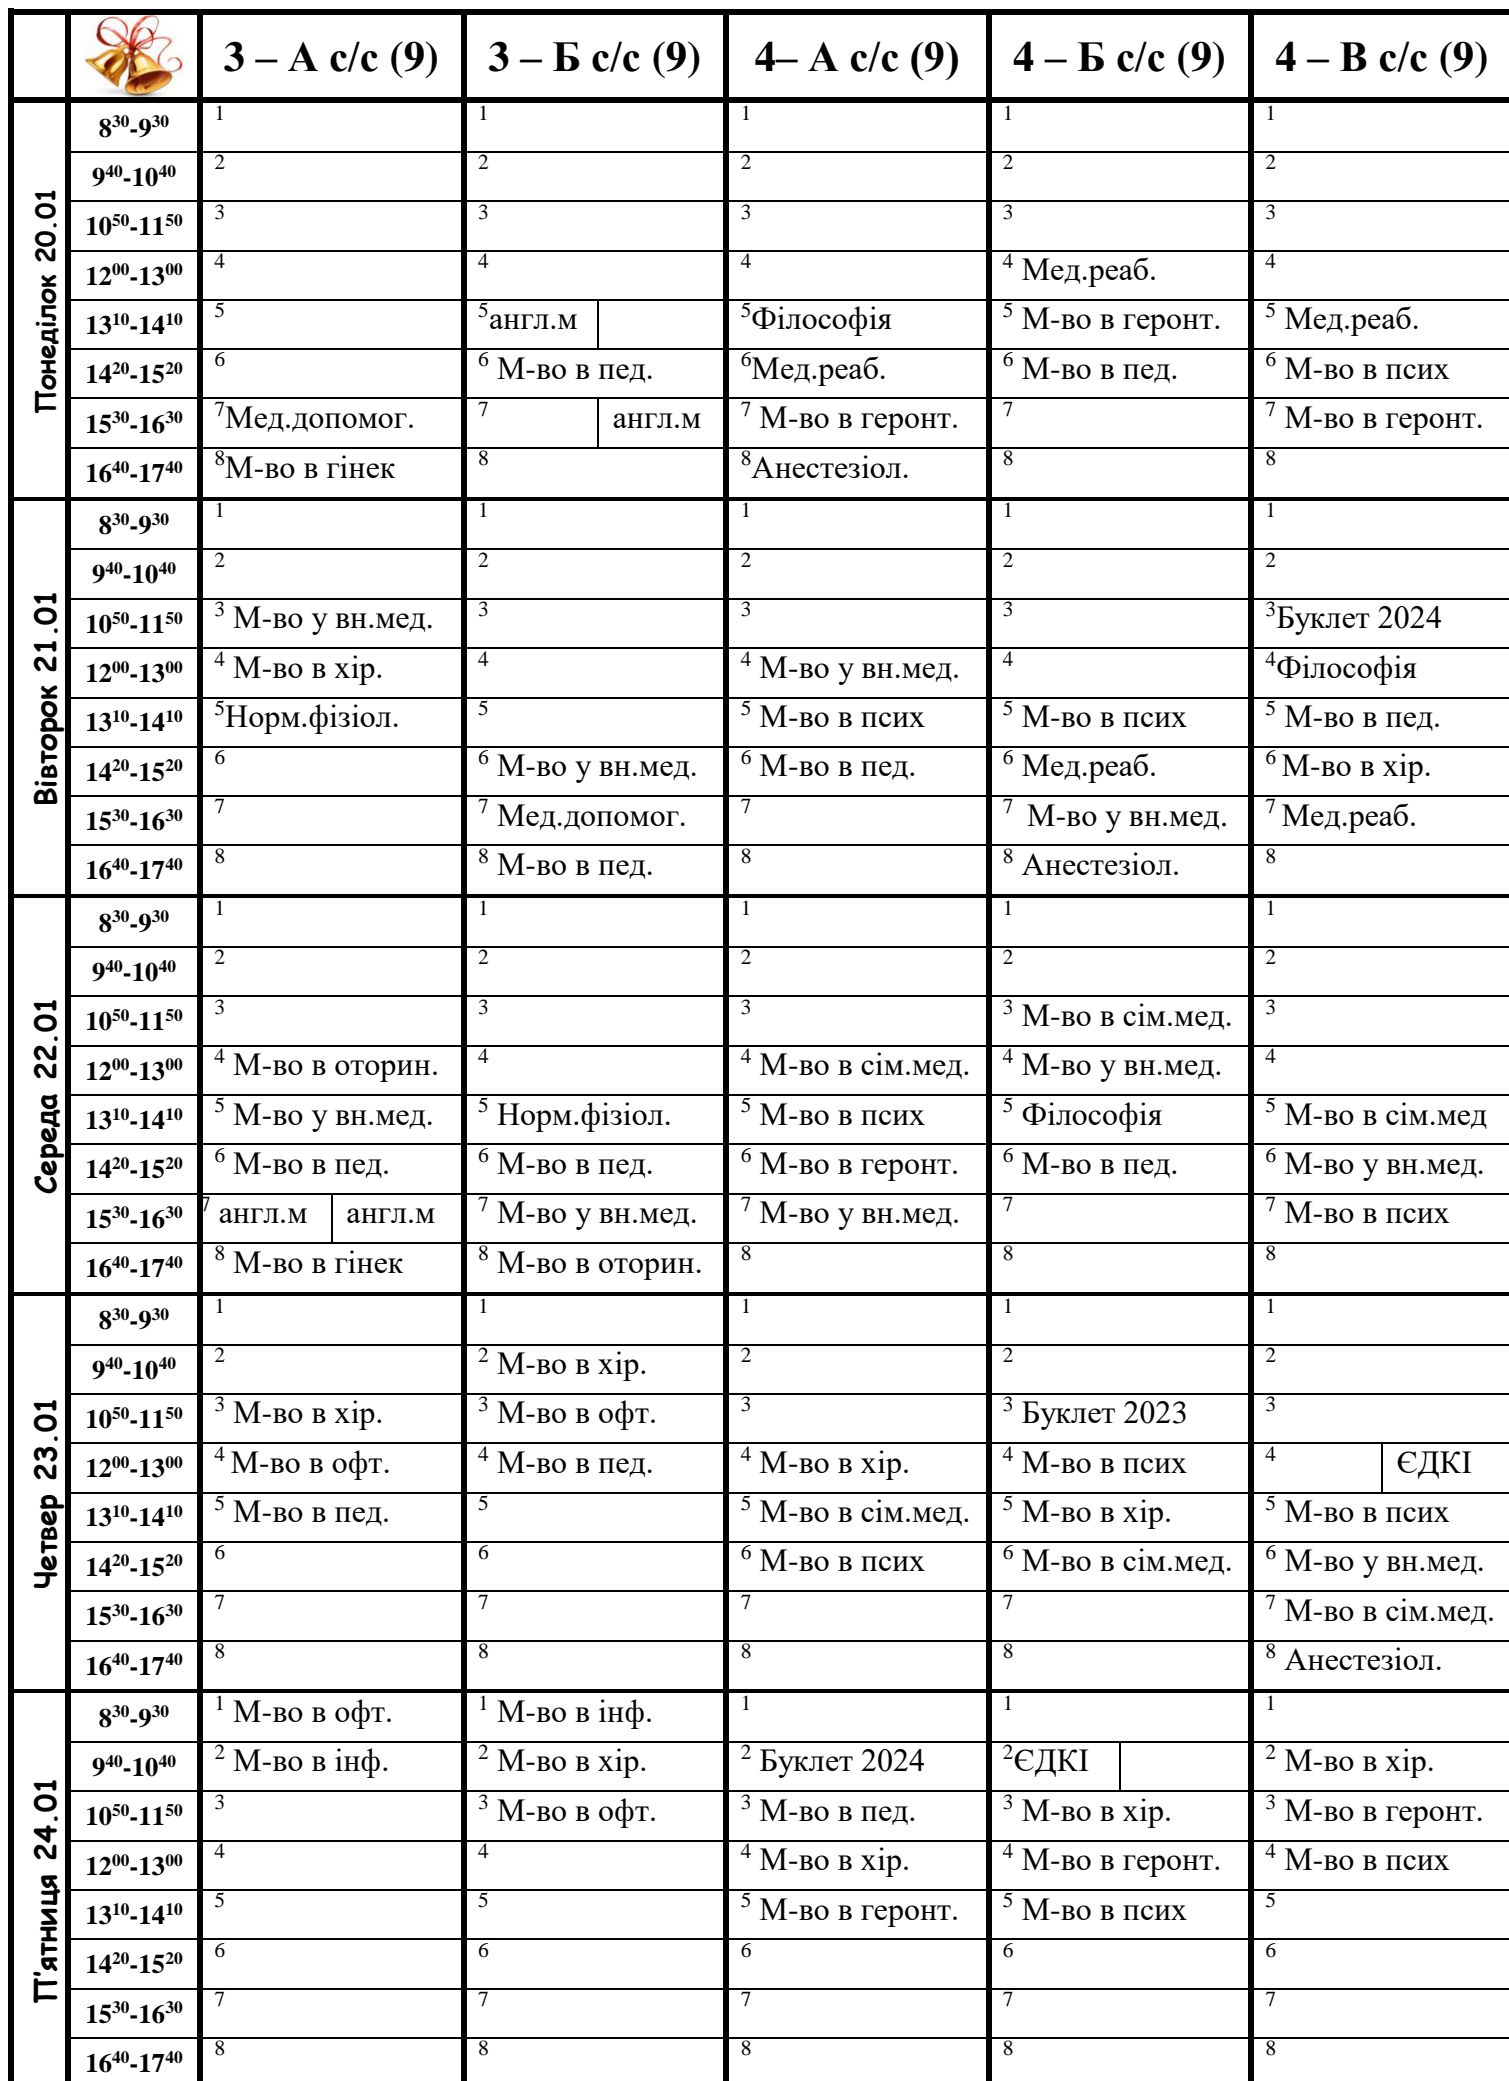 3 – А с/с (9) 3 – Б с/с (9) 4– А с/с (9) 4 – Б с/с (9) 4 – В с/с (9)
Понеділок 20.01
8³⁰-9³⁰ 1 1 1 1 1
9⁴⁰-10⁴⁰ 2 2 2 2 2
10⁵⁰-11⁵⁰ 3 3 3 3 3
12⁰⁰-13⁰⁰ 4 4 4 4 Мед.реаб. 4
13¹⁰-14¹⁰ 5 5англ.м 5Філософія 5 М-во в геронт. 5 Мед.реаб.
14²⁰-15²⁰ 6 6 М-во в пед. 6Мед.реаб. 6 М-во в пед. 6 М-во в псих
15³⁰-16³⁰ 7Мед.допомог. 7 англ.м 7 М-во в геронт. 7 7 М-во в геронт.
16⁴⁰-17⁴⁰ 8М-во в гінек 8 8Анестезіол. 8 8
Вівторок 21.01
8³⁰-9³⁰ 1 1 1 1 1
9⁴⁰-10⁴⁰ 2 2 2 2 2
10⁵⁰-11⁵⁰ 3 М-во у вн.мед. 3 3 3 3Буклет 2024
12⁰⁰-13⁰⁰ 4 М-во в хір. 4 4 М-во у вн.мед. 4 4Філософія
13¹⁰-14¹⁰ 5Норм.фізіол. 5 5 М-во в псих 5 М-во в псих 5 М-во в пед.
14²⁰-15²⁰ 6 6 М-во у вн.мед. 6 М-во в пед. 6 Мед.реаб. 6 М-во в хір.
15³⁰-16³⁰ 7 7 Мед.допомог. 7 7 М-во у вн.мед. 7 Мед.реаб.
16⁴⁰-17⁴⁰ 8 8 М-во в пед. 8 8 Анестезіол. 8
Середа 22.01
8³⁰-9³⁰ 1 1 1 1 1
9⁴⁰-10⁴⁰ 2 2 2 2 2
10⁵⁰-11⁵⁰ 3 3 3 3 М-во в сім.мед. 3
12⁰⁰-13⁰⁰ 4 М-во в оторин. 4 4 М-во в сім.мед. 4 М-во у вн.мед. 4
13¹⁰-14¹⁰ 5 М-во у вн.мед. 5 Норм.фізіол. 5 М-во в псих 5 Філософія 5 М-во в сім.мед
14²⁰-15²⁰ 6 М-во в пед. 6 М-во в пед. 6 М-во в геронт. 6 М-во в пед. 6 М-во у вн.мед.
15³⁰-16³⁰ 7 англ.м англ.м 7 М-во у вн.мед. 7 М-во у вн.мед. 7 7 М-во в псих
16⁴⁰-17⁴⁰ 8 М-во в гінек 8 М-во в оторин. 8 8 8
Четвер 23.01
8³⁰-9³⁰ 1 1 1 1 1
9⁴⁰-10⁴⁰ 2 2 М-во в хір. 2 2 2
10⁵⁰-11⁵⁰ 3 М-во в хір. 3 М-во в офт. 3 3 Буклет 2023 3
12⁰⁰-13⁰⁰ 4 М-во в офт. 4 М-во в пед. 4 М-во в хір. 4 М-во в псих 4 ЄДКІ
13¹⁰-14¹⁰ 5 М-во в пед. 5 5 М-во в сім.мед. 5 М-во в хір. 5 М-во в псих
14²⁰-15²⁰ 6 6 6 М-во в псих 6 М-во в сім.мед. 6 М-во у вн.мед.
15³⁰-16³⁰ 7 7 7 7 7 М-во в сім.мед.
16⁴⁰-17⁴⁰ 8 8 8 8 8 Анестезіол.
П'ятниця 24.01
8³⁰-9³⁰ 1 М-во в офт. 1 М-во в інф. 1 1 1
9⁴⁰-10⁴⁰ 2 М-во в інф. 2 М-во в хір. 2 Буклет 2024 2ЄДКІ 2 М-во в хір.
10⁵⁰-11⁵⁰ 3 3 М-во в офт. 3 М-во в пед. 3 М-во в хір. 3 М-во в геронт.
12⁰⁰-13⁰⁰ 4 4 4 М-во в хір. 4 М-во в геронт. 4 М-во в псих
13¹⁰-14¹⁰ 5 5 5 М-во в геронт. 5 М-во в псих 5
14²⁰-15²⁰ 6 6 6 6 6
15³⁰-16³⁰ 7 7 7 7 7
16⁴⁰-17⁴⁰ 8 8 8 8 8